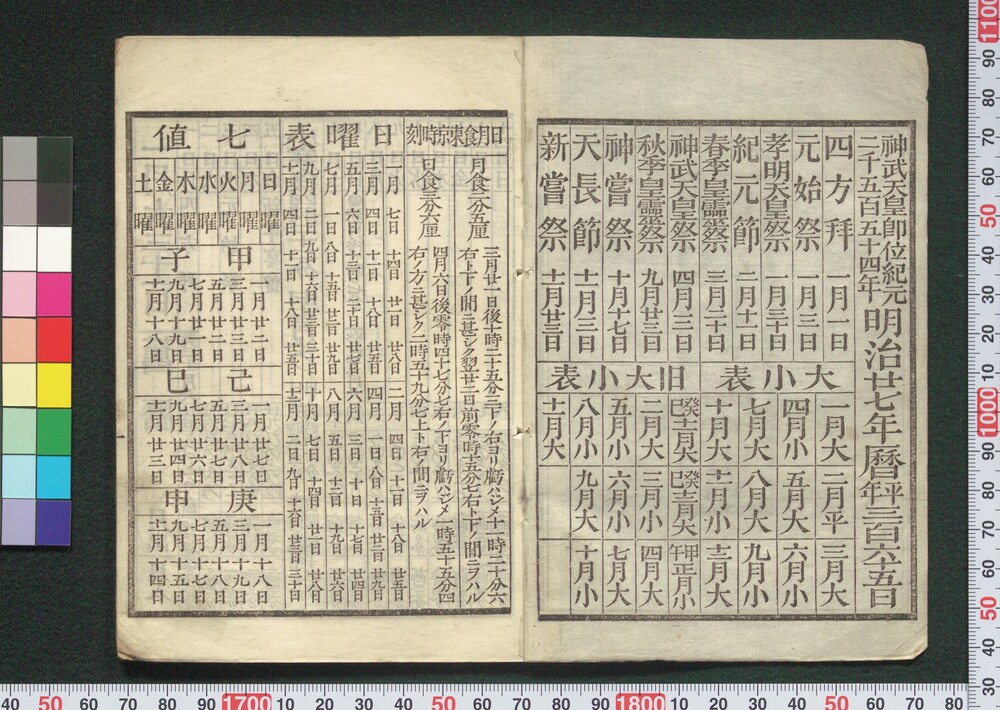 神武天皇即位紀元
二千五百五十四年
明治廿七年暦平年三百六十五日
四方拜 一月一日
元始祭 一月三日
孝明天皇祭 一月三十日
紀元節 二月十一日
春季皇靈祭 三月二十日
神武天皇祭 四月三日
秋季皇靈祭 九月廿三日
神嘗祭 十月十七日
天長節 十一月三日
新嘗祭 十一月廿三日
大小表
一月大 二月平 三月大
四月小 五月大 六月小
七月大 八月大 九月小
十月大 十一月小 十二月大
旧大小表
癸巳十一月大 癸巳十二月大 甲午正月小
二月大 三月小 四月大
五月小 六月小 七月大
八月小 九月大 十月小
十一月大
日月食東京時刻
月食二分五厘
三月廿一日後十時二十五分二下ノ右ヨリ虧ハシメ十一時二十分六
右ト下ノ間ニ甚シク翌廿二日前零時十五分七右ト下ノ間ニヲハル
日食二分六厘
四月六日後零時四十七分七右ノ下ヨリ虧ハシメ一時五十五分四
右ノ方ニ甚シク二時五十九分七上ト右ノ間ニヲハル
日曜表
一月 七日 十四日 廿一日 廿八日 二月 四日 十一日 十八日 廿五日
三月 四日 十一日 十八日 廿五日 四月 一日 八日 十五日 廿二日 廿九日
五月 六日 十三日 二十日 廿七日 六月 三日 十日 十七日 廿四日
七月 一日 八日 十五日 廿二日 廿九日 八月 五日 十二日 十九日 廿六日
九月 二日 九日 十六日 廿三日 三十日 十月 七日 十四日 廿一日 廿八日
十一月 四日 十一日 十八日 廿五日 十二月 二日 九日 十六日 廿三日 三十日
七値
日曜
月曜
火曜
水曜
木曜
金曜
土曜
甲子
一月廿二日
三月廿三日
五月廿二日
七月廿一日
九月十九日
十一月十八日
己巳
一月廿七日
三月廿八日
五月廿七日
七月廿六日
九月廿四日
十一月廿三日
庚申
一月十八日
三月十九日
五月十八日
七月十七日
九月十五日
十一月十四日
40 50 60 70 80 90 1700 10 20 30 40 50 60 70 80 90 1800 10 20 30 40 50 60 70 80
1100 90 80 70 60 50 40 30 20 10 1000 90 80 70 60 50 40 30